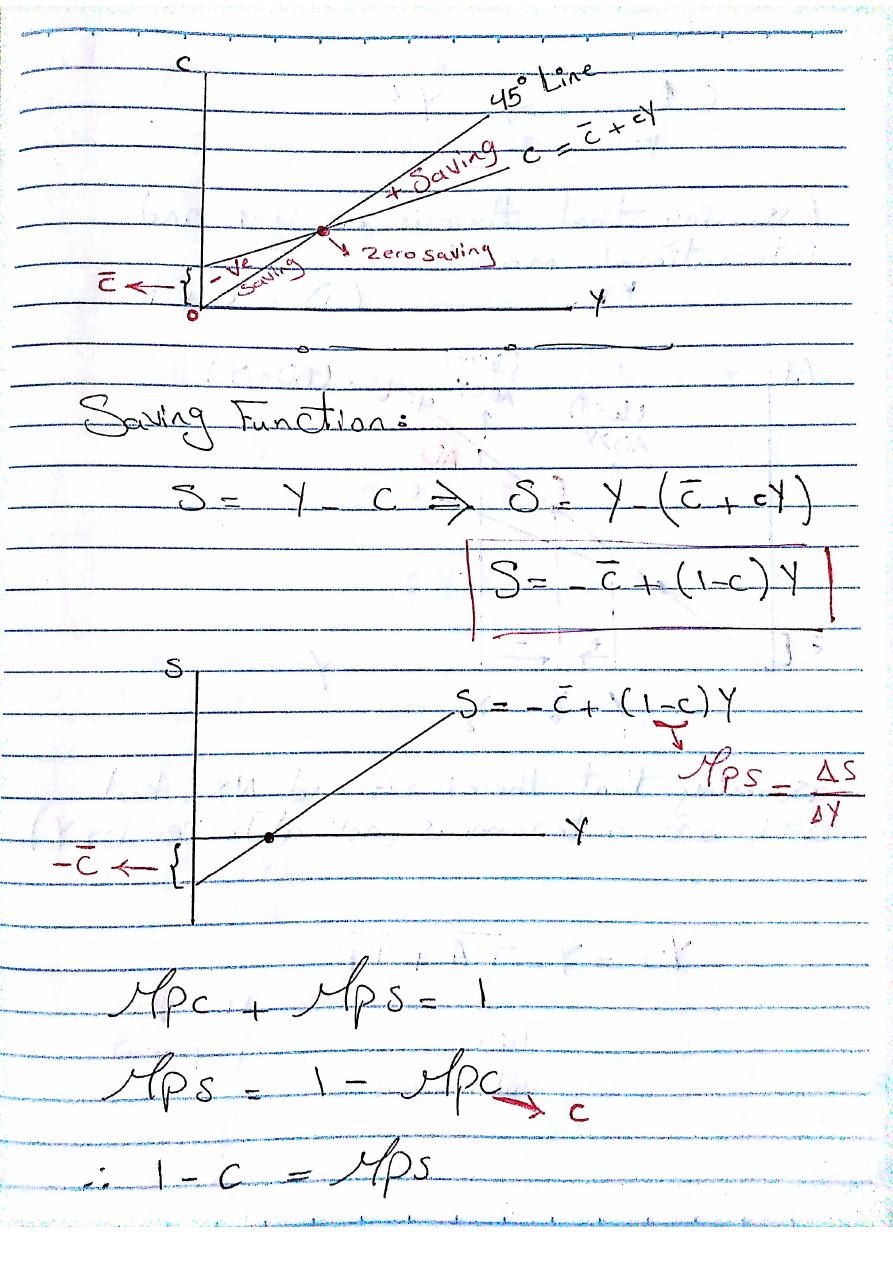 C
45° Line
C = C̄ + cY
+ Saving
zero saving
-ve
saving
C̄
Y
0
Saving Function:
S = Y - C ⇒ S = Y - (C̄ + cY)
S = -C̄ + (1-c) Y
S
S = -C̄ + (1-c) Y
Mps = ΔS/ΔY
Y
-C̄
Mpc + Mps = 1
Mps = 1 - Mpc → c
∴ 1 - c = Mps